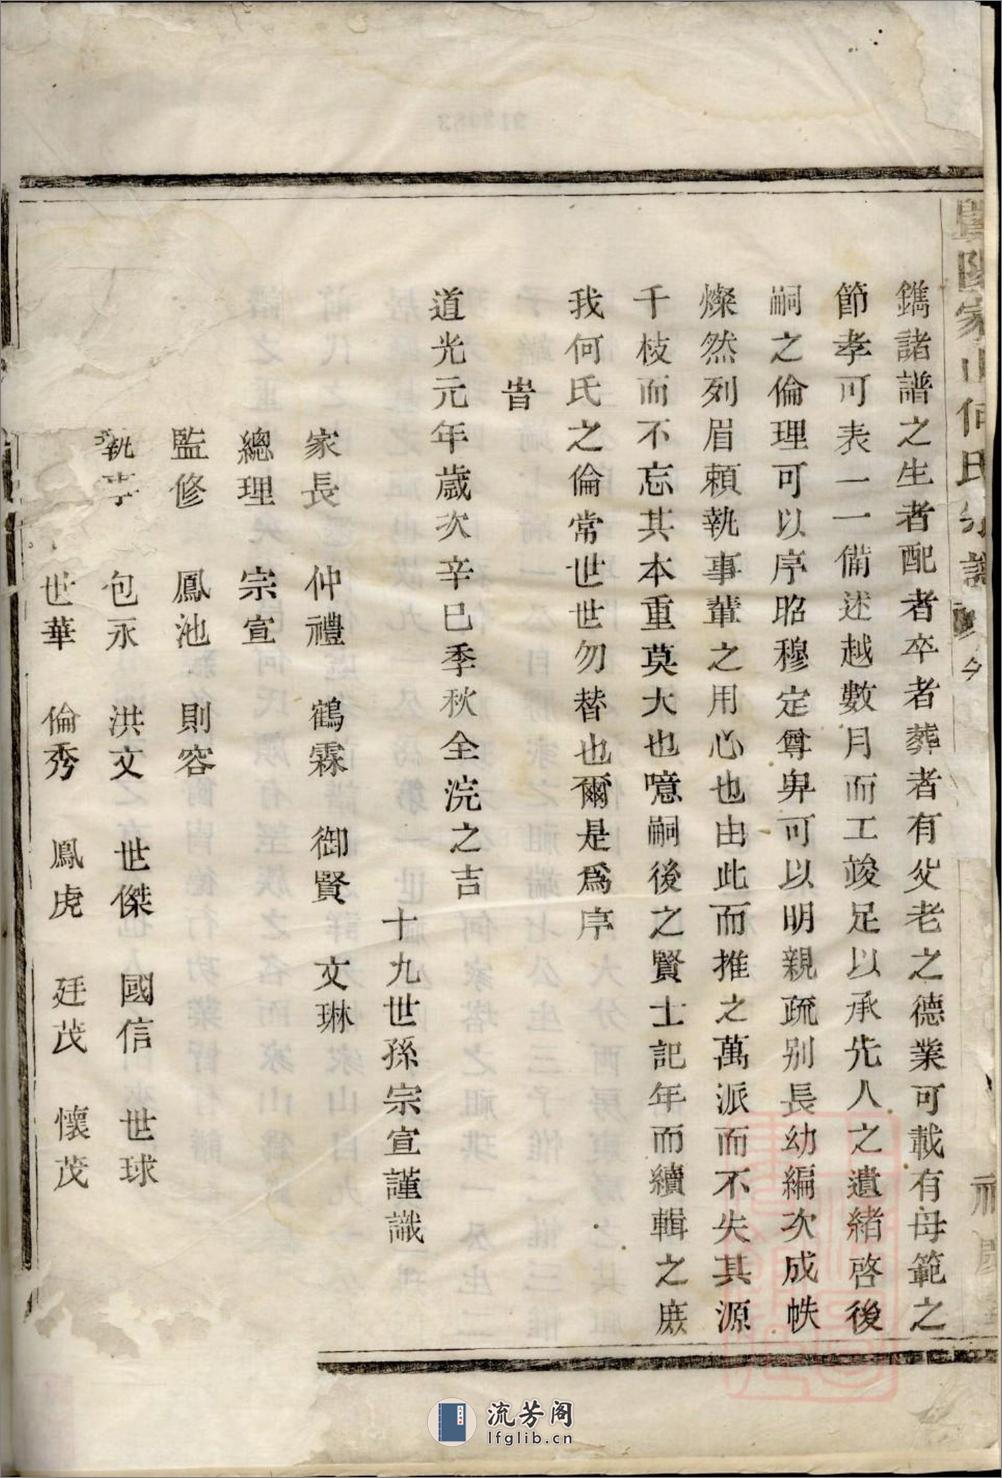 家山何氏宗譜
鐫諸譜之生者配者卒者葬者有父老之德業可載有母範之
節孝可表一一備述越數月而工竣足以承先人之遺緒啓後
嗣之倫理可以序昭穆定尊卑可以明親疏別長幼編次成帙
燦然列眉賴執事輩之用心也由此而推之萬派而不失其源
千枝而不忘其本重莫大也噫嗣後之賢士記年而續輯之庶
我何氏之倫常世世勿替也爾是為序
旹
道光元年歲次辛巳季秋全浣之吉
十九世孫宗宣謹識
家長 仲禮 鶴霖 御賢 文琳
總理 宗宣
監修 鳳池 則容
執事 包永 洪文 世傑 國信 世球
世華 倫秀 鳳虎 廷茂 懷茂
流芳阁
lfglib.cn